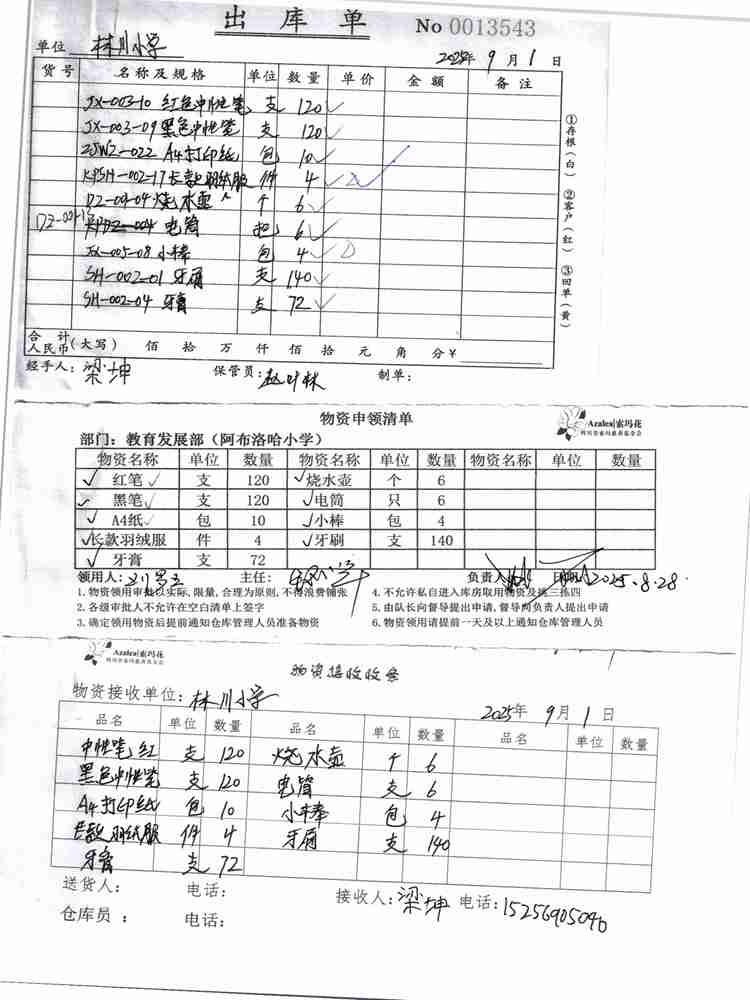 出库单 No 0013543
单位 林川小学 2025年 9月 1日
货号 名称及规格 单位 数量 单价 金额 备注
JX-003-10 红色中性笔 支 120 ✓
JX-003-09 黑色中性笔 支 120 ✓
ZJWZ-022 A4打印纸 包 10 ✓
KPSH-002-17 长款羽绒服 件 4 ✓
DZ-04-04 烧水壶 个 6 ✓
电筒 把 6 ✓
JX-005-08 小棒 包 4 ✓
SH-002-01 牙刷 支 140 ✓
SH-002-04 牙膏 支 72 ✓
①存根(白) ②客户(红) ③回单(黄)
合计人民币(大写) 佰 拾 万 仟 佰 拾 元 角 分 ¥
经手人: 梁坤 保管员: 制单:
物资申领清单 Azalea|索玛花
部门: 教育发展部(阿布洛哈小学)
物资名称 单位 数量 物资名称 单位 数量 物资名称 单位 数量
红笔 ✓ 支 120 ✓ 烧水壶 个 6
✓ 黑笔 支 120 ✓ 电筒 只 6
✓ A4纸 包 10 ✓ 小棒 包 4
✓ 长款羽绒服 件 4 ✓ 牙刷 支 140
✓ 牙膏 支 72
领用人: 主任: 负责人 2025.8.28
1. 物资领用审批以实际,限量,合理为原则,不得浪费铺张 4. 不允许私自进入库房取用物资及挑三拣四
2. 各级审批人不允许在空白清单上签字 5. 由队长向督导提出申请,督导向负责人提出申请
3. 确定领用物资后提前通知仓库管理人员准备物资 6. 物资领用请提前一天及以上通知仓库管理人员
Azalea|索玛花
物资接收收条
物资接收单位: 林川小学 2025年 9月 1日
品名 单位 数量 品名 单位 数量 品名 单位 数量
中性笔 红 支 120 烧水壶 个 6
黑色中性笔 支 120 电筒 支 6
A4打印纸 包 10 小棒 包 4
长款羽绒服 件 4 牙刷 支 140
牙膏 支 72
送货人: 电话: 接收人: 梁坤 电话: 15256905096
仓库员: 电话: